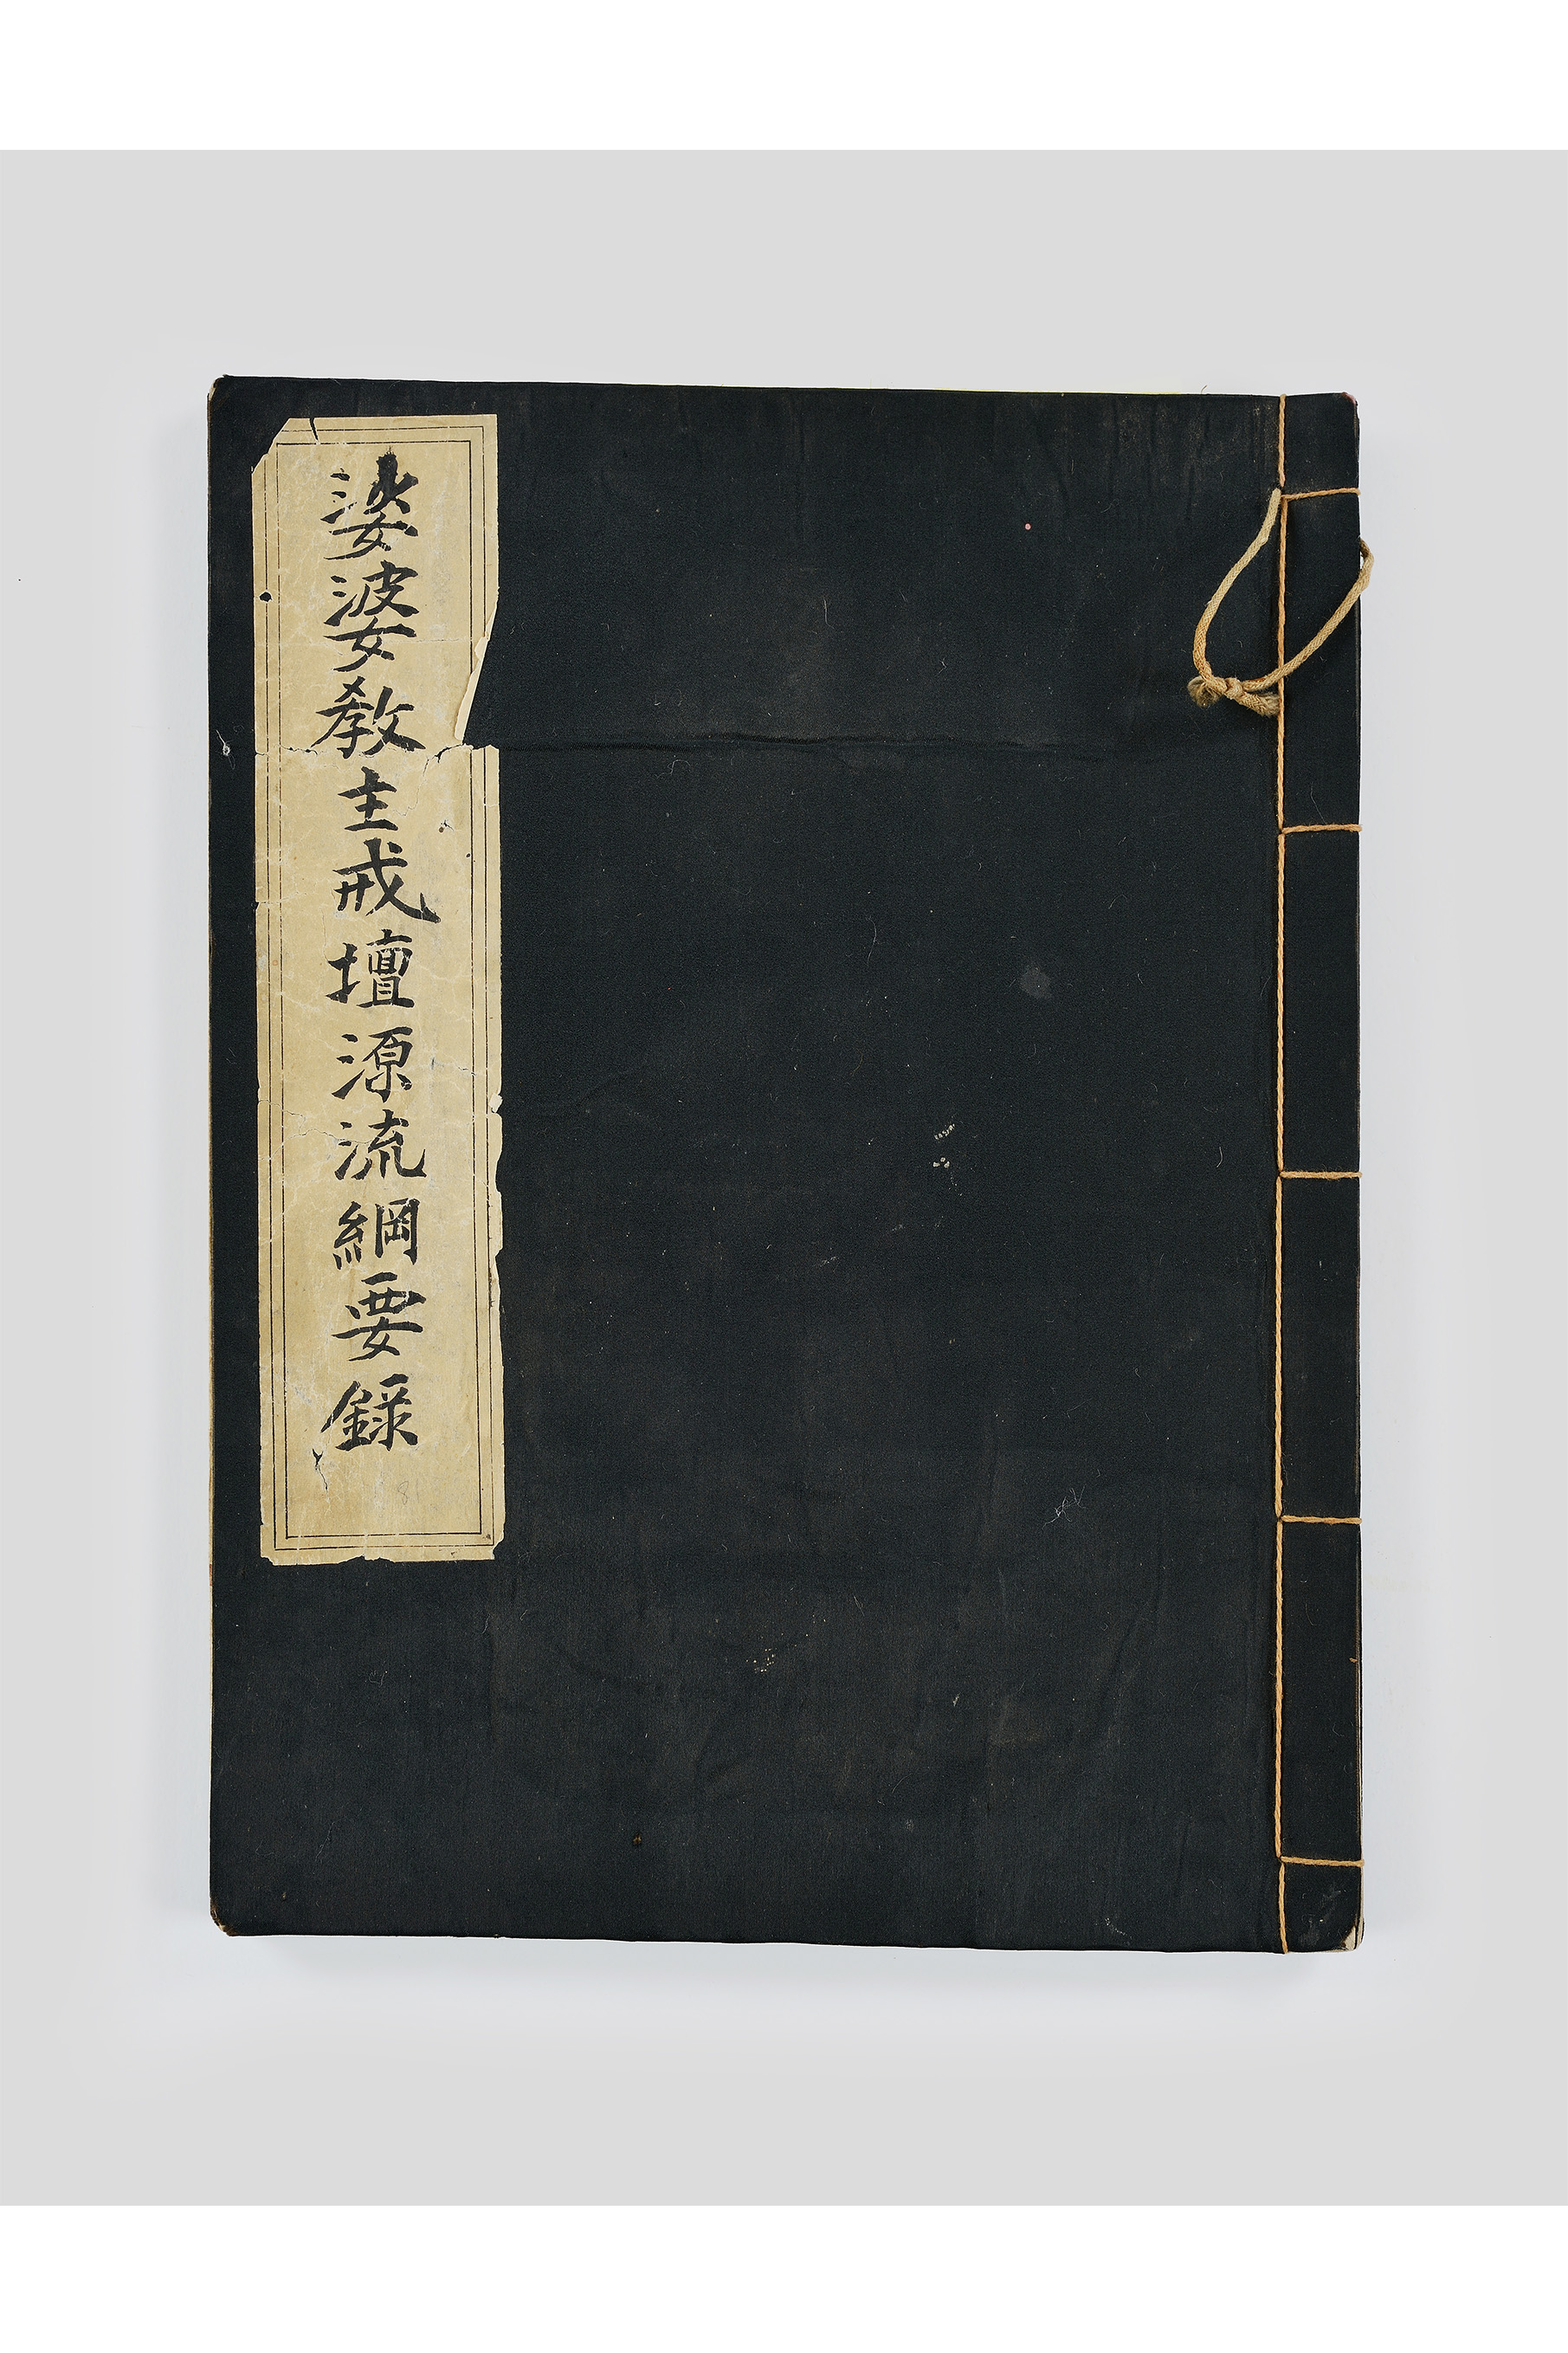 娑婆敎主戒壇源流綱要錄